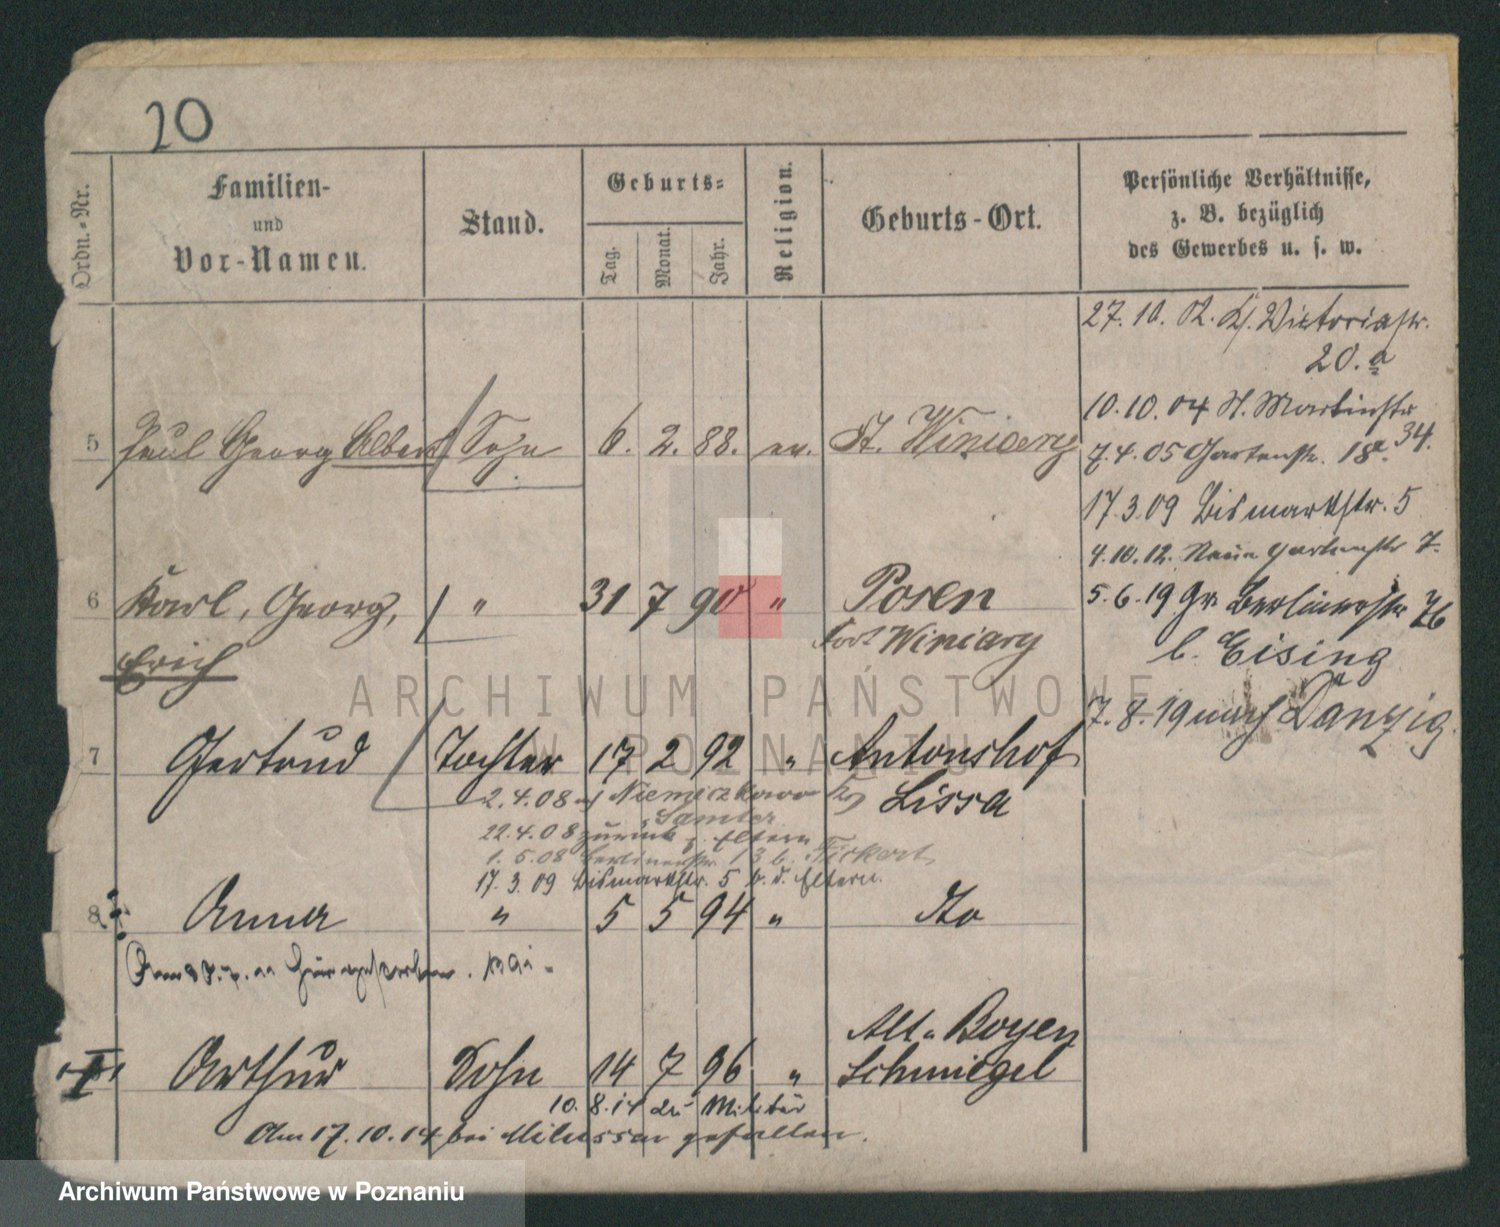 20
Ordn.-Nr.
Familien-
und
Vor-Namen.
Stand.
Geburts-
Tag.
Monat.
Jahr.
Religion.
Geburts-Ort.
Persönliche Verhältnisse,
z. B. bezüglich
des Gewerbes u. s. w.
27. 10. 02. Victoriastr.
20. a
10. 10. 04 St. Martinstr
34.
7. 4. 05 Gartenstr. 18a.
17. 3. 09 Bismarkstr. 5
4. 10. 12. Neue Gartenstr 7.
5. 6. 19 Gr. Berlinerstr 76
b. Eising
7. 8. 19 nach Danzig.
5 Paul Georg Albert Sohn 6. 2. 88. ev. Ft. Winiary
6 Karl, Georg, " 31 7 90 " Posen
Erich Fort Winiary
7 Gertrud Tochter 17 2 92 " Antonshof
Lissa
2. 4. 08 Niemczkowo
Samter
22. 4. 08 zurück z. Eltern
1. 5. 08 Berlinerstr. 13 b.
17. 3. 09 Bismarkstr. 5 b. d. Eltern.
8 Anna " 5 5 94 " do
Arthur Sohn 14 7 96 " Alt-Boyen
Schmiegel
10. 8. 14 zu Militär
Am 17. 10. 14 bei gefallen.
ARCHIWUM PAŃSTWOWE
W POZNANIU
Archiwum Państwowe w Poznaniu